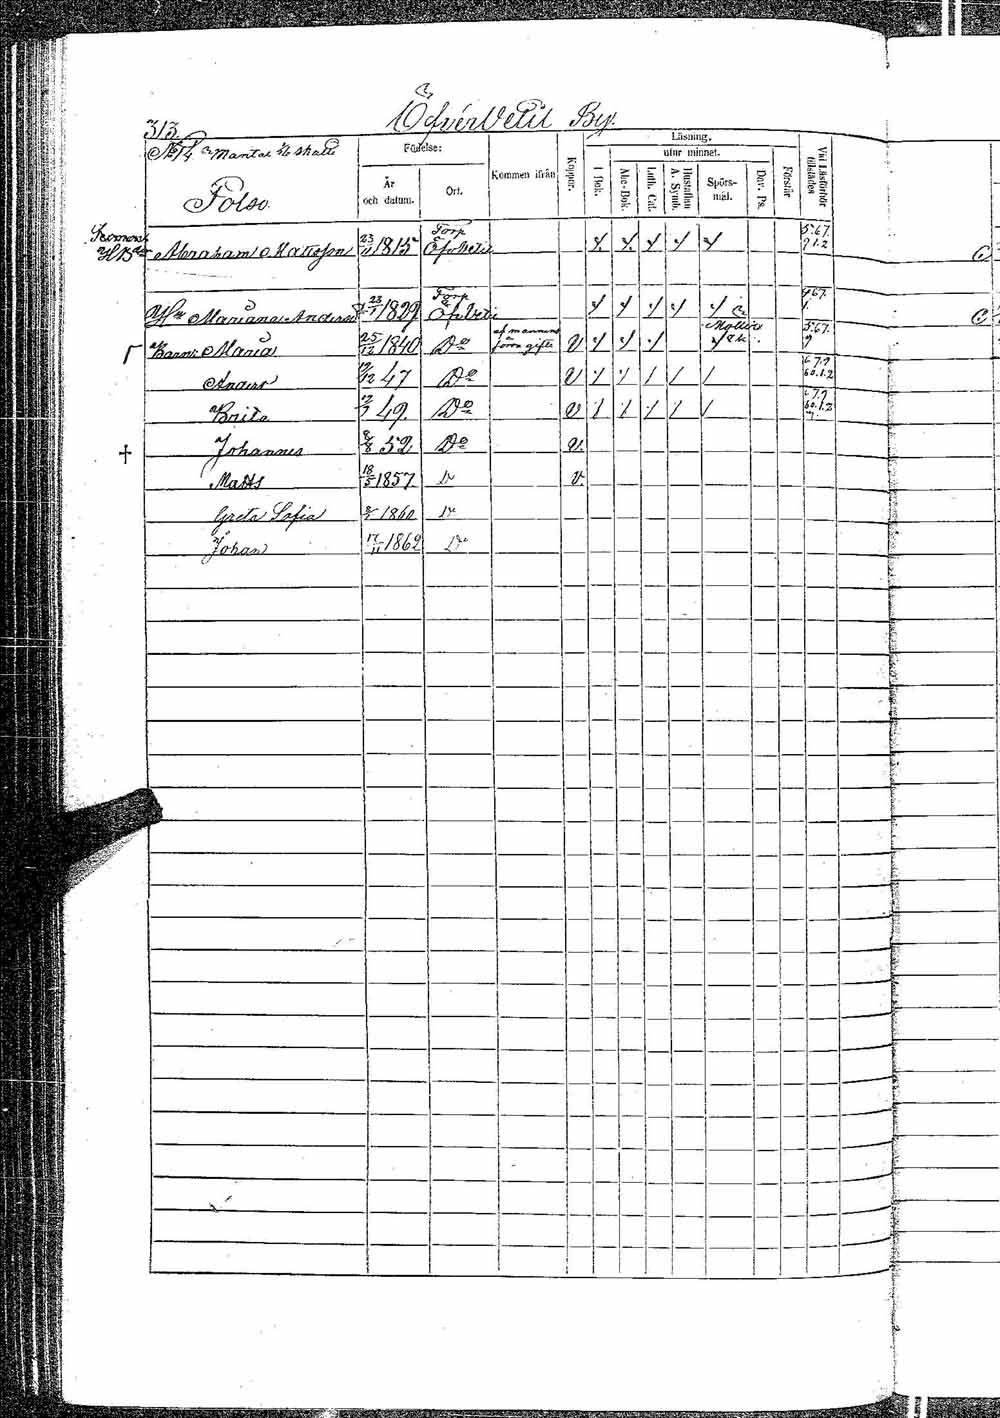 Öfvervetil By.
313
No 14 Mantal skatte
Polso.
Födelse:
År och datum.
Ort.
Kommen ifrån
Koppor.
Läsning.
I Bok.
utur minnet.
Abc-Bok.
Luth. Cat.
Hustaflan A. Symb.
Spörsmål.
Dav. Ps.
Förstår
Vid Läsförhör tillstädes
Abraham Mattsson 23/11 1815 Torp Öfvetil 5.67. 9 1.2
Hu Mariana Andersd 23/1 1829 Torp Öfvetil 467. 1.
Barn: Maria 25/12 1840 Do af mannens förra gifte V 567. 9
Anders /12 47 Do V 679 60.1.2
Brita 12/7 49. Do V 679 60.1.2
Johannes 8/8 52 Do V.
Matts 18/5 1857 Do V.
Greta Sofia 1860 Do
Johan 17/11 1862 Do